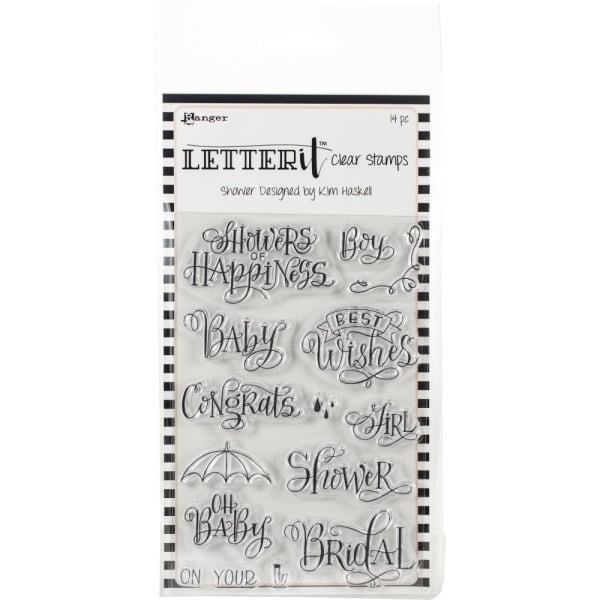 Ranger 14 pc
LETTERit™ Clear Stamps
Shower Designed by Kim Haskell
SHOWERS
OF
HAPPINESS
Boy
BABY
BEST
WISHES
CONGRATS
GIRL
SHOWER
OH
BABY
BRIDAL
ON YOUR